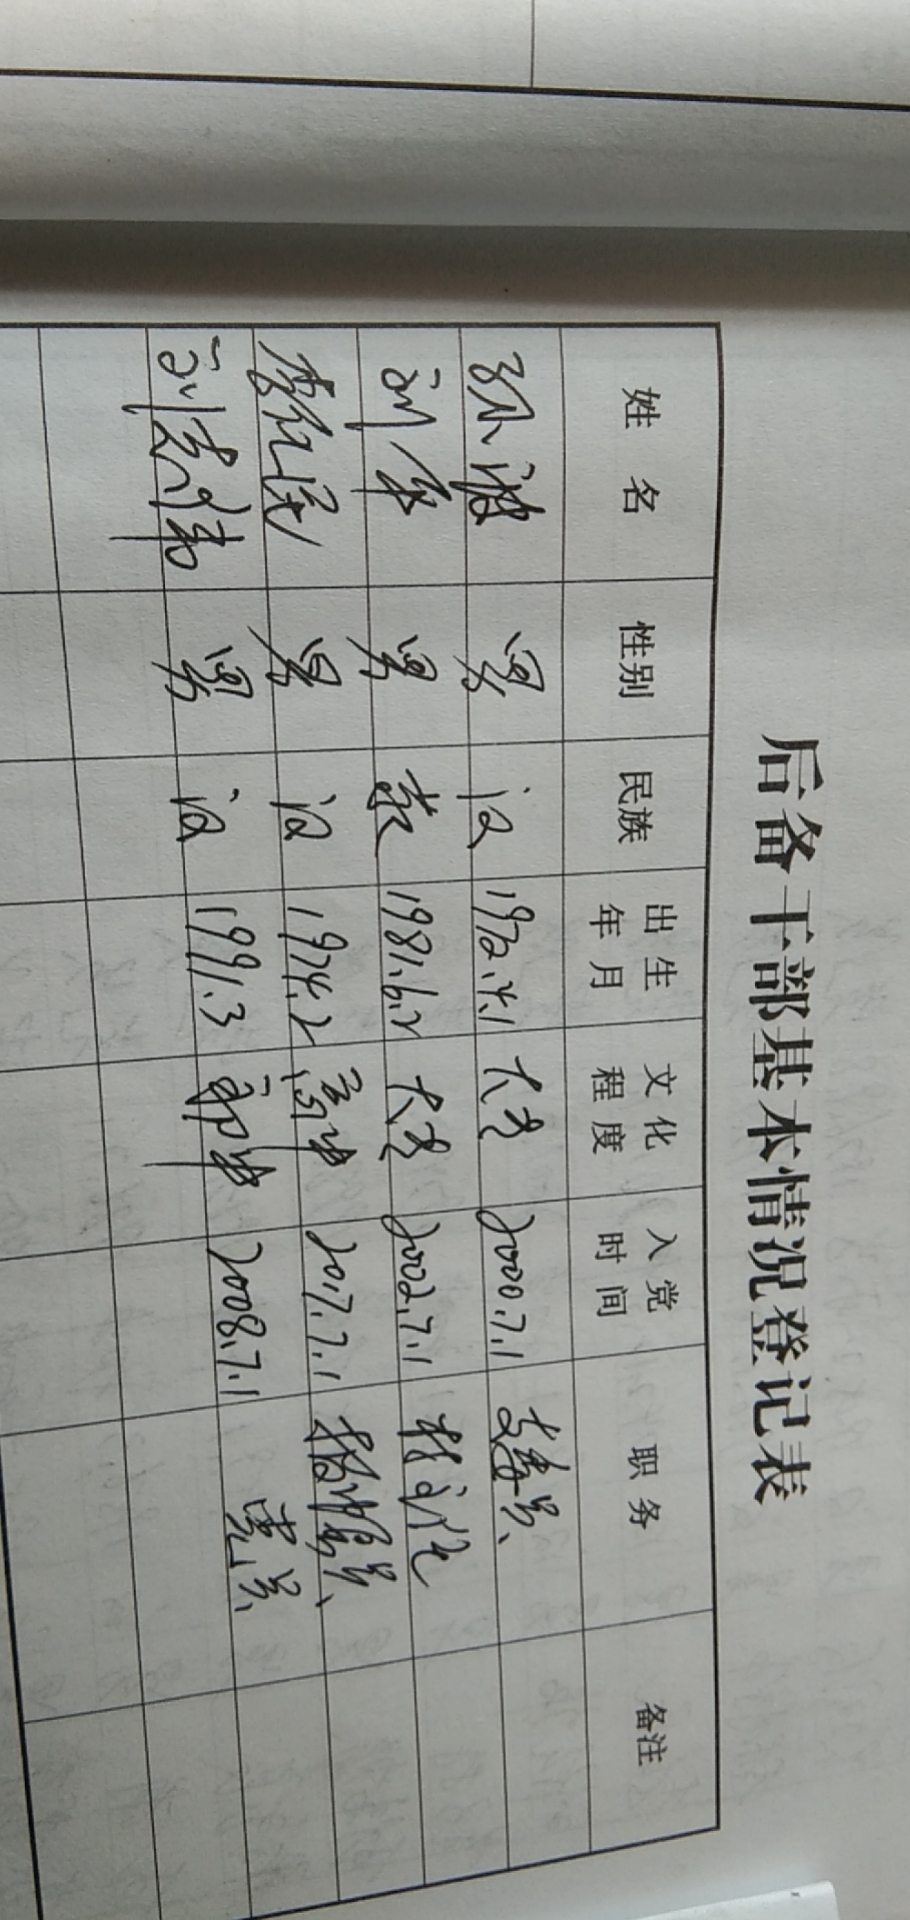 后备干部基本情况登记表
姓名 性别 民族 出生年月 文化程度 入党时间 职务 备注
孙波 男 汉 1972.4.1 大专 2000.7.1 支委员
刘 男 1981.6.2 大专 2002.7.1 村主任
李红民 男 汉 1974.2 高中 2017.7.1
刘志伟 男 汉 1991.3 初中 2008.7.1 党员